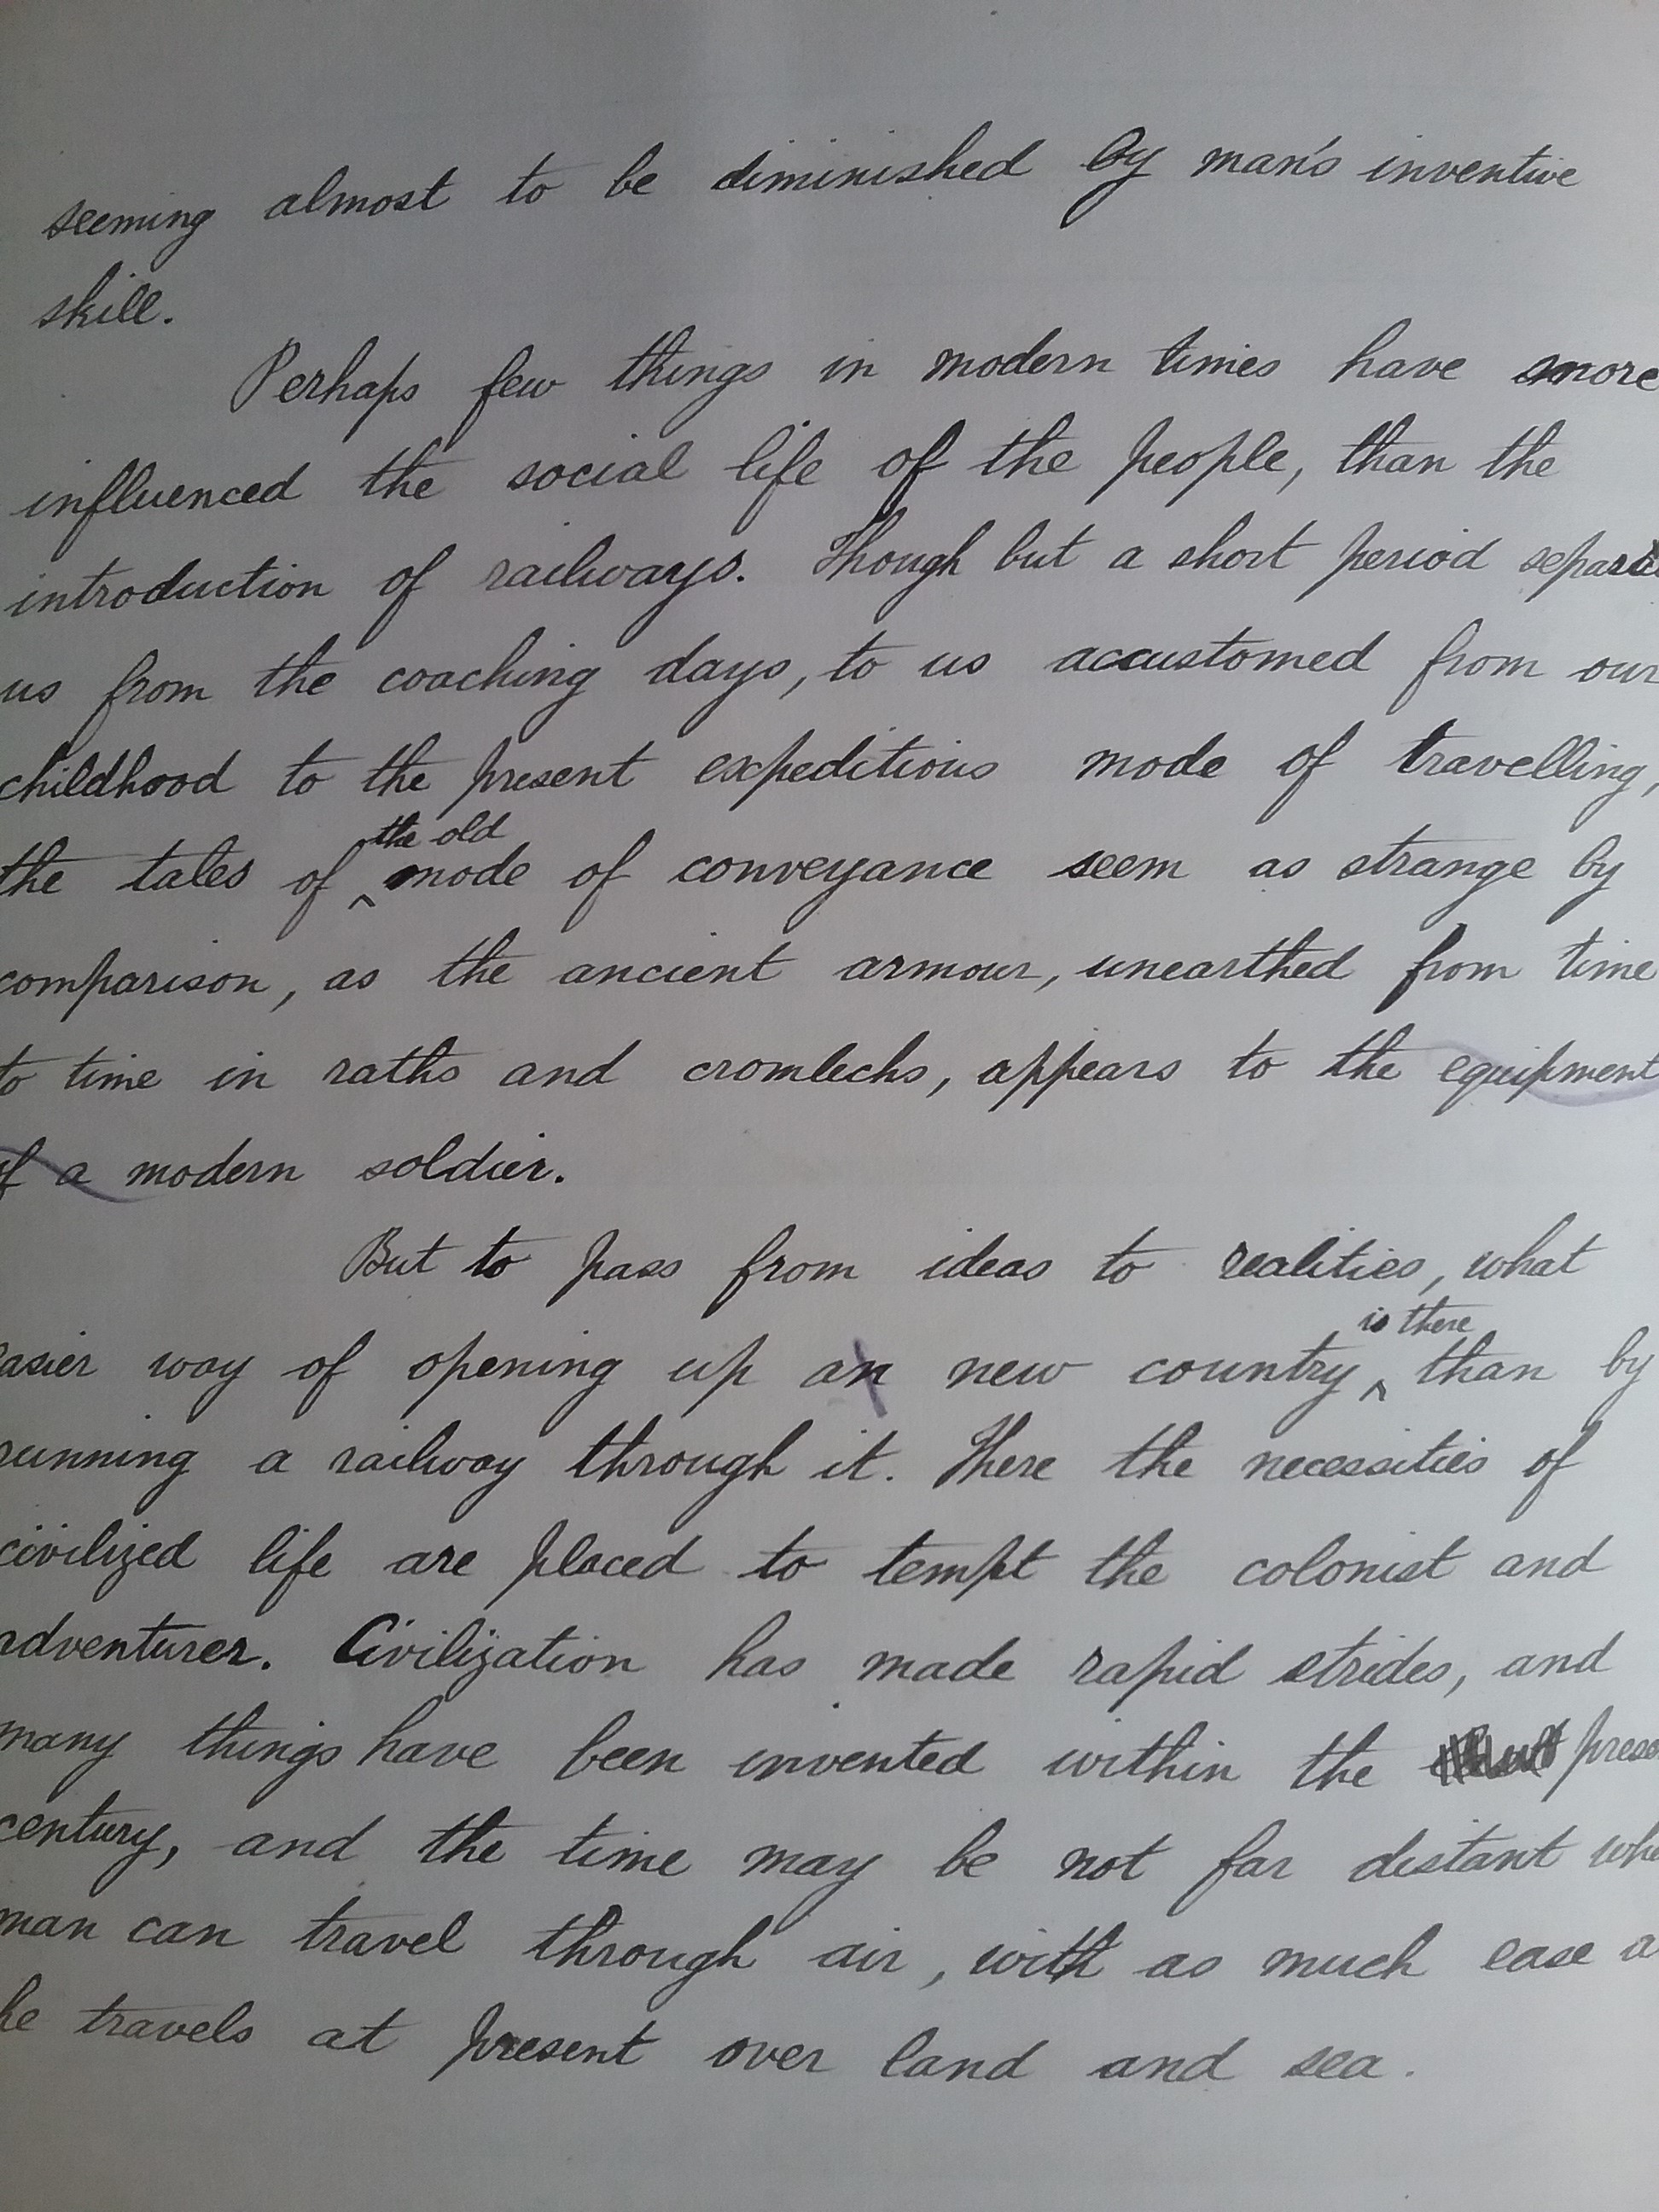 seeming almost to be diminished by man's inventive
skill.
Perhaps few things in modern times have more
influenced the social life of the people, than the
introduction of railways. Though but a short period separate
us from the coaching days, to us accustomed from our
childhood to the present expeditious mode of travelling,
the old
the tales of ^ mode of conveyance seem as strange by
comparison, as the ancient armour, unearthed from time
to time in raths and cromlechs, appears to the equipment
of a modern soldier.
But to pass from ideas to realities, what
is there
easier way of opening up an new country ^ than by
running a railway through it. There the necessities of
civilized life are placed to tempt the colonist and
adventurer. Civilization has made rapid strides, and
many things have been invented within the prese
century, and the time may be not far distant whe
man can travel through air, with as much ease a
he travels at present over land and sea.